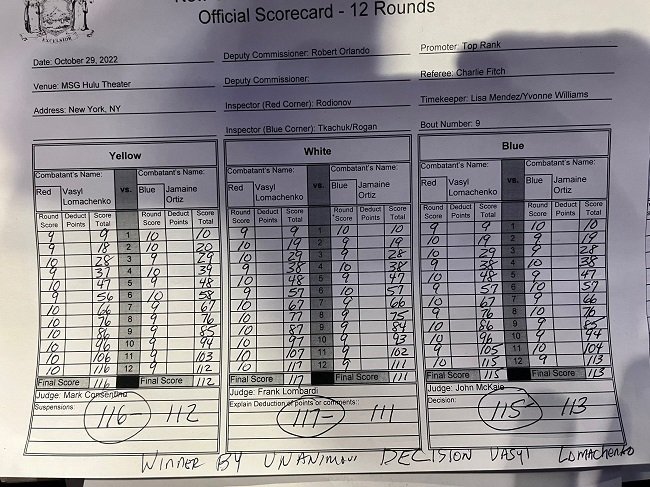 EXCELSIOR
Official Scorecard - 12 Rounds
Date: October 29, 2022 Deputy Commissioner: Robert Orlando Promoter: Top Rank
Venue: MSG Hulu Theater Deputy Commissioner: Referee: Charlie Fitch
Address: New York, NY Inspector (Red Corner): Rodionov Timekeeper: Lisa Mendez/Yvonne Williams
Inspector (Blue Corner): Tkachuk/Rogan Bout Number: 9
Yellow White Blue
Combatant's Name: vs. Combatant's Name: Combatant's Name: vs. Combatant's Name: Combatant's Name: vs. Combatant's Name:
Red Vasyl Lomachenko Blue Jamaine Ortiz Red Vasyl Lomachenko Blue Jamaine Ortiz Red Vasyl Lomachenko Blue Jamaine Ortiz
Round Score Deduct Points Score Total Round Score Deduct Points Score Total Round Score Deduct Points Score Total Round Score Deduct Points Score Total Round Score Deduct Points Score Total Round Score Deduct Points Score Total
9 9 1 10 10 9 9 1 10 10 9 9 1 10 10
9 18 2 10 20 10 19 2 9 19 10 19 2 9 19
10 28 3 9 29 10 29 3 9 28 10 29 3 9 28
9 37 4 10 39 9 38 4 10 38 9 38 4 10 38
10 47 5 9 48 10 48 5 9 47 10 48 5 9 47
9 56 6 10 58 9 57 6 10 57 9 57 6 10 57
10 66 7 9 67 10 67 7 9 66 10 67 7 9 66
10 76 8 9 76 10 77 8 9 75 9 76 8 10 76
10 86 9 9 85 10 87 9 9 84 10 86 9 9 85
10 96 10 9 94 10 97 10 9 93 10 96 10 9 94
10 106 11 9 103 10 107 11 9 102 9 105 11 10 104
10 116 12 9 112 10 117 12 9 111 10 115 12 9 113
Final Score 116 Final Score 112 Final Score 117 Final Score 111 Final Score 115 Final Score 113
Judge: Mark Consentino Judge: Frank Lombardi Judge: John McKaie
Suspensions: Explain Deduction of points or comments:: Decision:
116- 112 117- 111 115- 113
WINNER BY UNANIMOUS DECISION VASYL LOMACHENKO